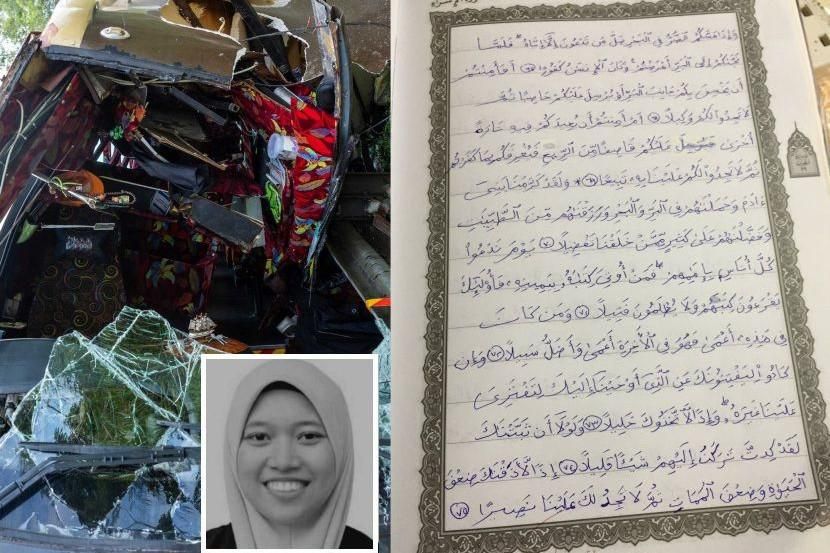 وَإِذَا مَسَّكُمُ الضُّرُّ فِي الْبَحْرِ ضَلَّ مَن تَدْعُونَ إِلَّا إِيَّاهُ ۖ فَلَمَّا
نَجَّىٰكُمْ إِلَى الْبَرِّ أَعْرَضْتُمْ ۚ وَكَانَ الْإِنسَٰنُ كَفُورًا ۝٦٧ أَفَأَمِنتُمْ
أَن يَخْسِفَ بِكُمْ جَانِبَ الْبَرِّ أَوْ يُرْسِلَ عَلَيْكُمْ حَاصِبًا ثُمَّ
لَا تَجِدُواْ لَكُمْ وَكِيلًا ۝٦٨ أَمْ أَمِنتُمْ أَن يُعِيدَكُمْ فِيهِ تَارَةً
أُخْرَىٰ فَيُرْسِلَ عَلَيْكُمْ قَاصِفًا مِّنَ الرِّيحِ فَيُغْرِقَكُم بِمَا كَفَرْتُمْ
ثُمَّ لَا تَجِدُواْ لَكُمْ عَلَيْنَا بِهِ تَبِيعًا ۝٦٩ وَلَقَدْ كَرَّمْنَا بَنِي
ءَادَمَ وَحَمَلْنَٰهُمْ فِي الْبَرِّ وَالْبَحْرِ وَرَزَقْنَٰهُم مِّنَ الطَّيِّبَٰتِ
وَفَضَّلْنَٰهُمْ عَلَىٰ كَثِيرٍ مِّمَّنْ خَلَقْنَا تَفْضِيلًا ۝٧٠ يَوْمَ نَدْعُواْ
كُلَّ أُنَاسٍ بِإِمَٰمِهِمْ ۖ فَمَنْ أُوتِيَ كِتَٰبَهُ بِيَمِينِهِ فَأُوْلَٰٓئِكَ
يَقْرَءُونَ كِتَٰبَهُمْ وَلَا يُظْلَمُونَ فَتِيلًا ۝٧١ وَمَن كَانَ
فِي هَٰذِهِ أَعْمَىٰ فَهُوَ فِي الْأَخِرَةِ أَعْمَىٰ وَأَضَلُّ سَبِيلًا ۝٧٢ وَإِن
كَادُواْ لَيَفْتِنُونَكَ عَنِ الَّذِي أَوْحَيْنَا إِلَيْكَ لِتَفْتَرِيَ
عَلَيْنَا غَيْرَهُ ۖ وَإِذًا لَّاتَّخَذُوكَ خَلِيلًا ۝٧٣ وَلَوْلَا أَن ثَبَّتْنَٰكَ
لَقَدْ كِدتَّ تَرْكَنُ إِلَيْهِمْ شَيْئًا قَلِيلًا ۝٧٤ إِذًا لَّأَذَقْنَٰكَ ضِعْفَ
الْحَيَوٰةِ وَضِعْفَ الْمَمَاتِ ثُمَّ لَا تَجِدُ لَكَ عَلَيْنَا نَصِيرًا ۝٧٥